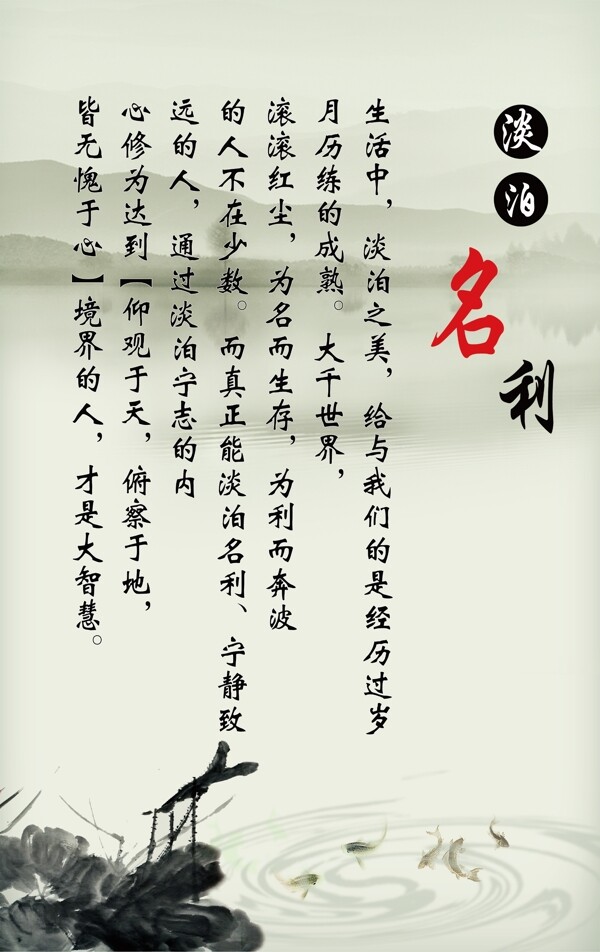 淡泊名利
生活中，淡泊之美，给与我们的是经历过岁
月历练的成熟。大千世界，
滚滚红尘，为名而生存，为利而奔波
的人不在少数。而真正能淡泊名利、宁静致
远的人，通过淡泊宁志的内
心修为达到【仰观于天，俯察于地，
皆无愧于心】境界的人，才是大智慧。